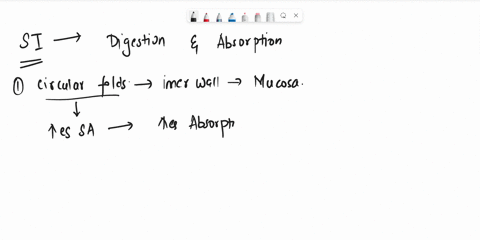 SI → Digestion & Absorption
① circular folds → inner wall → Mucosa.
↓
↑es SA → ↑es Absorptn